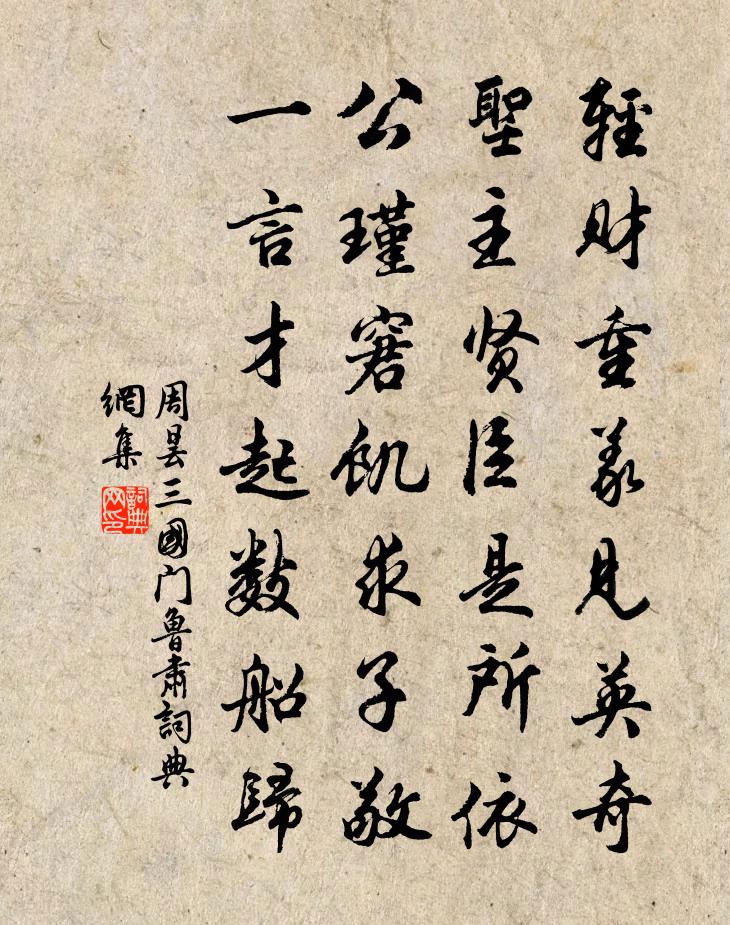 輕財重義見英奇
聖主贤臣是所依
公瑾窘飢求子敬
一言才起數船歸
周昙三國门魯肅詞典
網集
詞典網印